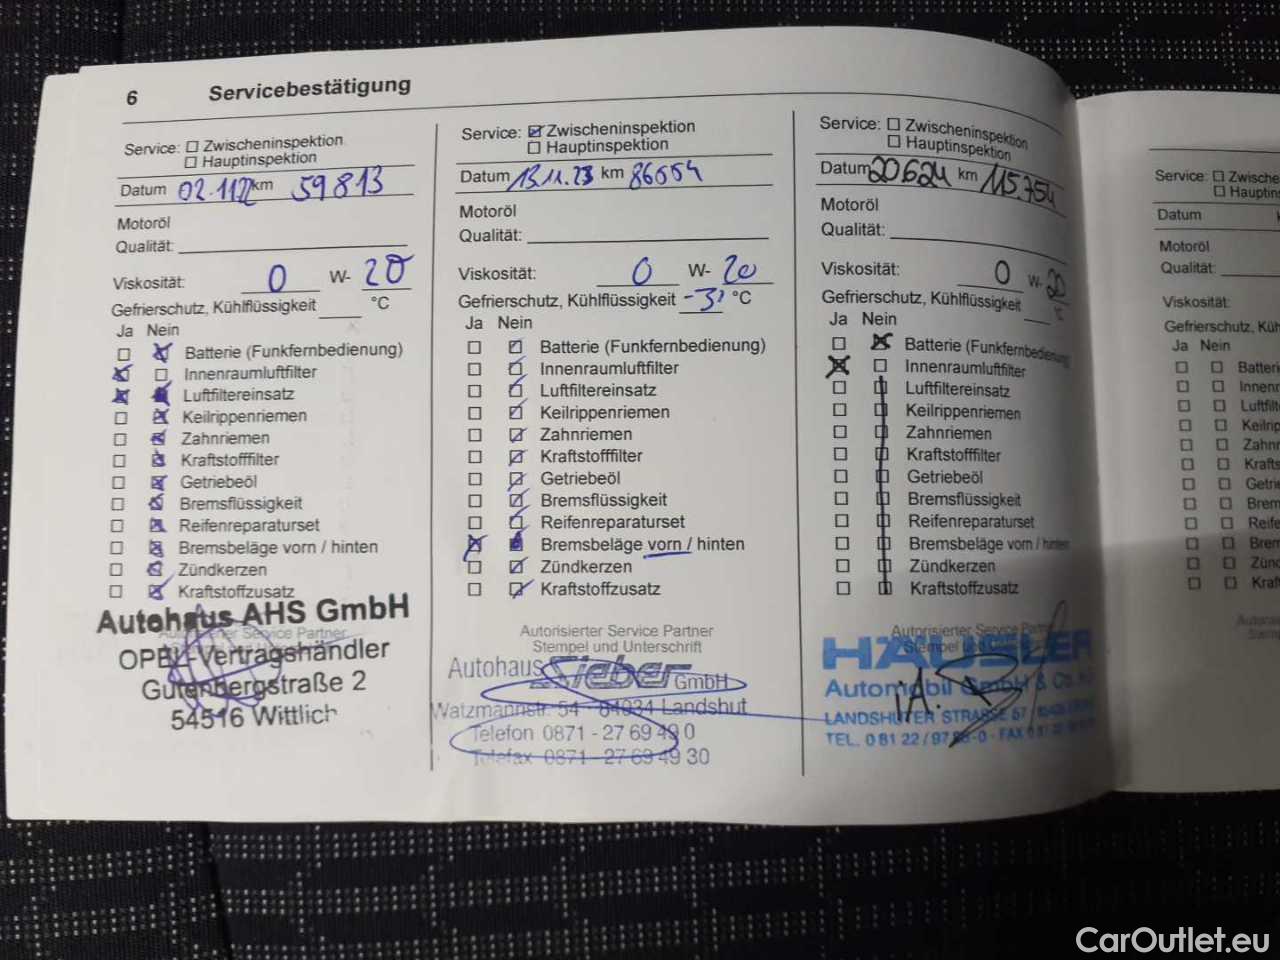 6 Servicebestätigung
Service: ☐ Zwischeninspektion
☐ Hauptinspektion
Datum 02.11.22 km 59813
Motoröl
Qualität:
Viskosität: 0 W- 20
Gefrierschutz, Kühlflüssigkeit °C
Ja Nein
Batterie (Funkfernbedienung)
Innenraumluftfilter
Luftfiltereinsatz
Keilrippenriemen
Zahnriemen
Kraftstofffilter
Getriebeöl
Bremsflüssigkeit
Reifenreparaturset
Bremsbeläge vorn / hinten
Zündkerzen
Kraftstoffzusatz
Autohaus AHS GmbH
Autorisierter Service Partner
OPEL-Vertragshändler
Gutenbergstraße 2
54516 Wittlich
Service: ☑ Zwischeninspektion
☐ Hauptinspektion
Datum 13.11.23 km 86554
Motoröl
Qualität:
Viskosität: 0 W- 20
Gefrierschutz, Kühlflüssigkeit °C
Ja Nein
Batterie (Funkfernbedienung)
Innenraumluftfilter
Luftfiltereinsatz
Keilrippenriemen
Zahnriemen
Kraftstofffilter
Getriebeöl
Bremsflüssigkeit
Reifenreparaturset
Bremsbeläge vorn / hinten
Zündkerzen
Kraftstoffzusatz
Autorisierter Service Partner
Stempel und Unterschrift
Autohaus Sieber GmbH
Watzmannstr. 54 - 84034 Landshut
Telefon 0871 - 27 69 49 0
Telefax 0871 - 27 69 49 30
Service: ☐ Zwischeninspektion
☐ Hauptinspektion
Datum 20624 km 115.754
Motoröl
Qualität:
Viskosität: 0 W- 20
Gefrierschutz, Kühlflüssigkeit °C
Ja Nein
Batterie (Funkfernbedienung)
Innenraumluftfilter
Luftfiltereinsatz
Keilrippenriemen
Zahnriemen
Kraftstofffilter
Getriebeöl
Bremsflüssigkeit
Reifenreparaturset
Bremsbeläge vorn / hinten
Zündkerzen
Kraftstoffzusatz
Autorisierter Service Partner
Stempel und
HÄUSLER
Automobil GmbH & Co.
i.A.
LANDSHUTER STRASSE
TEL. 0 81 22 / FAX
Service: ☐ Zwische
☐ Hauptins
Datum
Motoröl
Qualität:
Viskosität:
Gefrierschutz, Küh
Ja Nein
Batterie
Innenr
Luftfilt
Keilrip
Zahnr
Krafts
Getrie
Brem
Reife
Brem
Zünd
Kraft
CarOutlet.eu